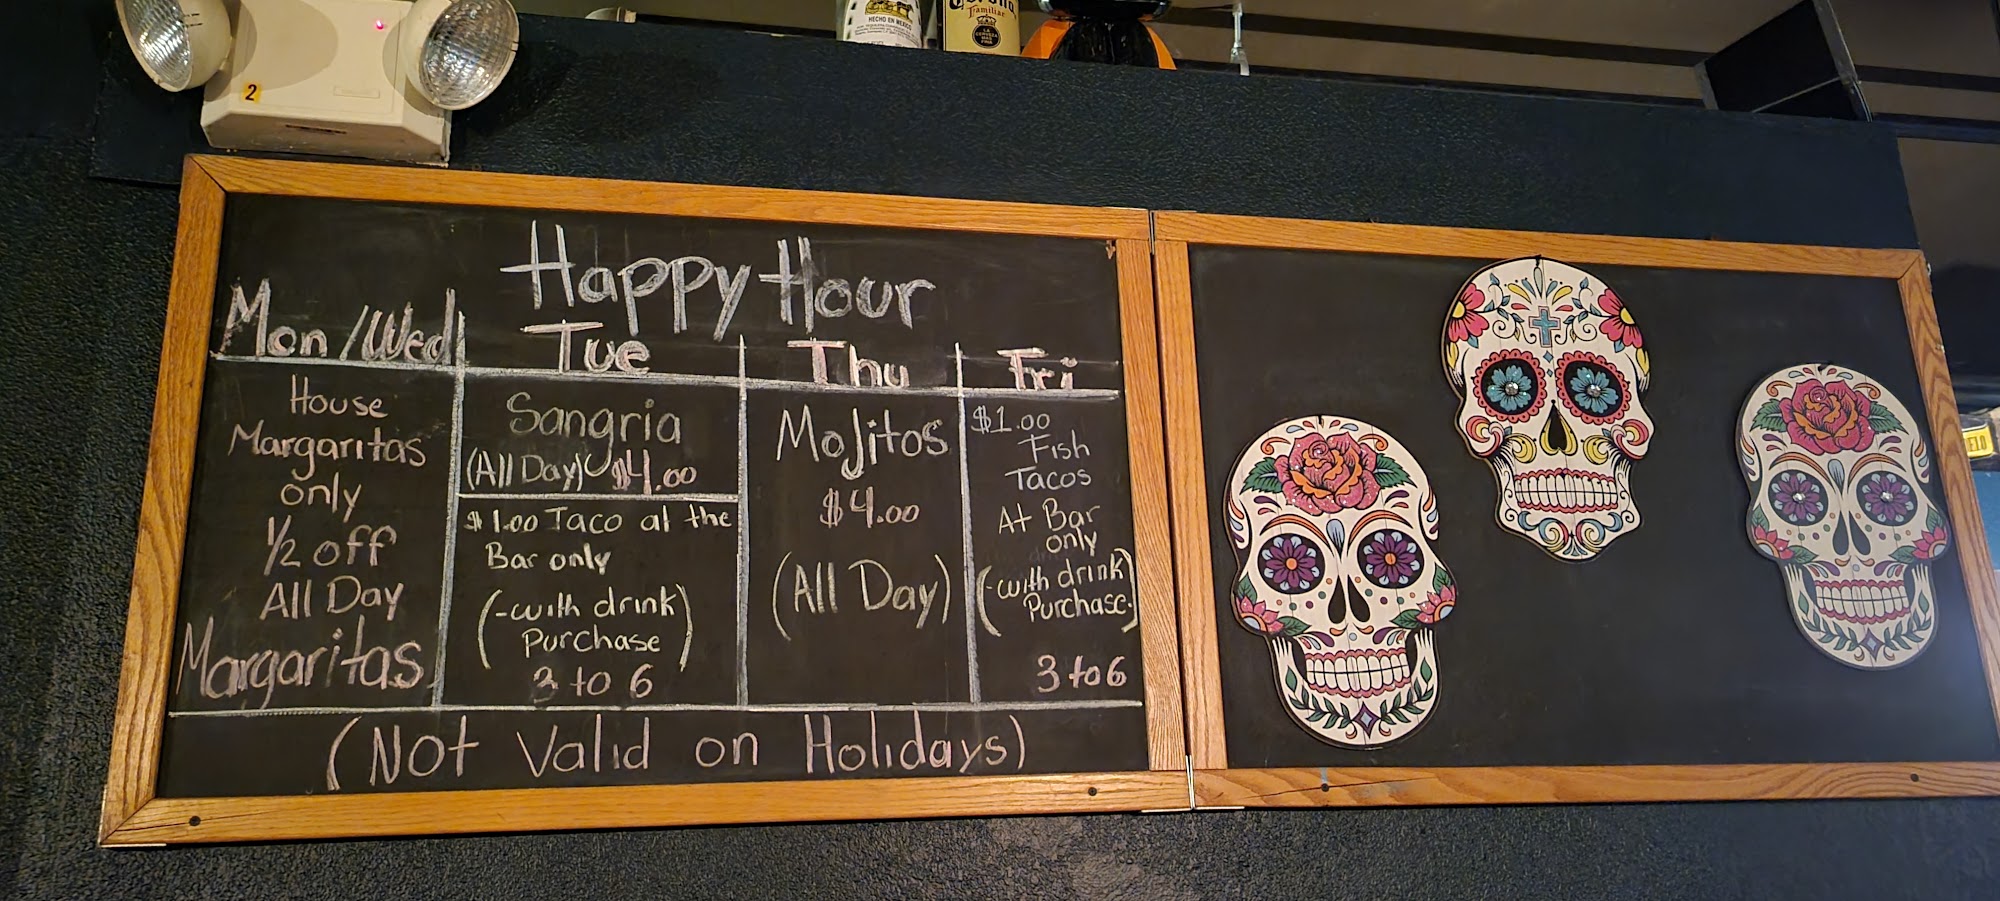 2
HECHO EN MEXICO
Corona
Familiar
LA CERVEZA MAS FINA
Happy Hour
Mon/Wed
House
Margaritas
only
1/2 off
All Day
Margaritas
Tue
Sangria
(All Day) $4.00
$1.00 Taco at the
Bar only
(-with drink
Purchase)
3 to 6
Thu
Mojitos
$4.00
(All Day)
Fri
$1.00
Fish
Tacos
At Bar
only
(-with drink
Purchase.)
3 to 6
(Not Valid on Holidays)